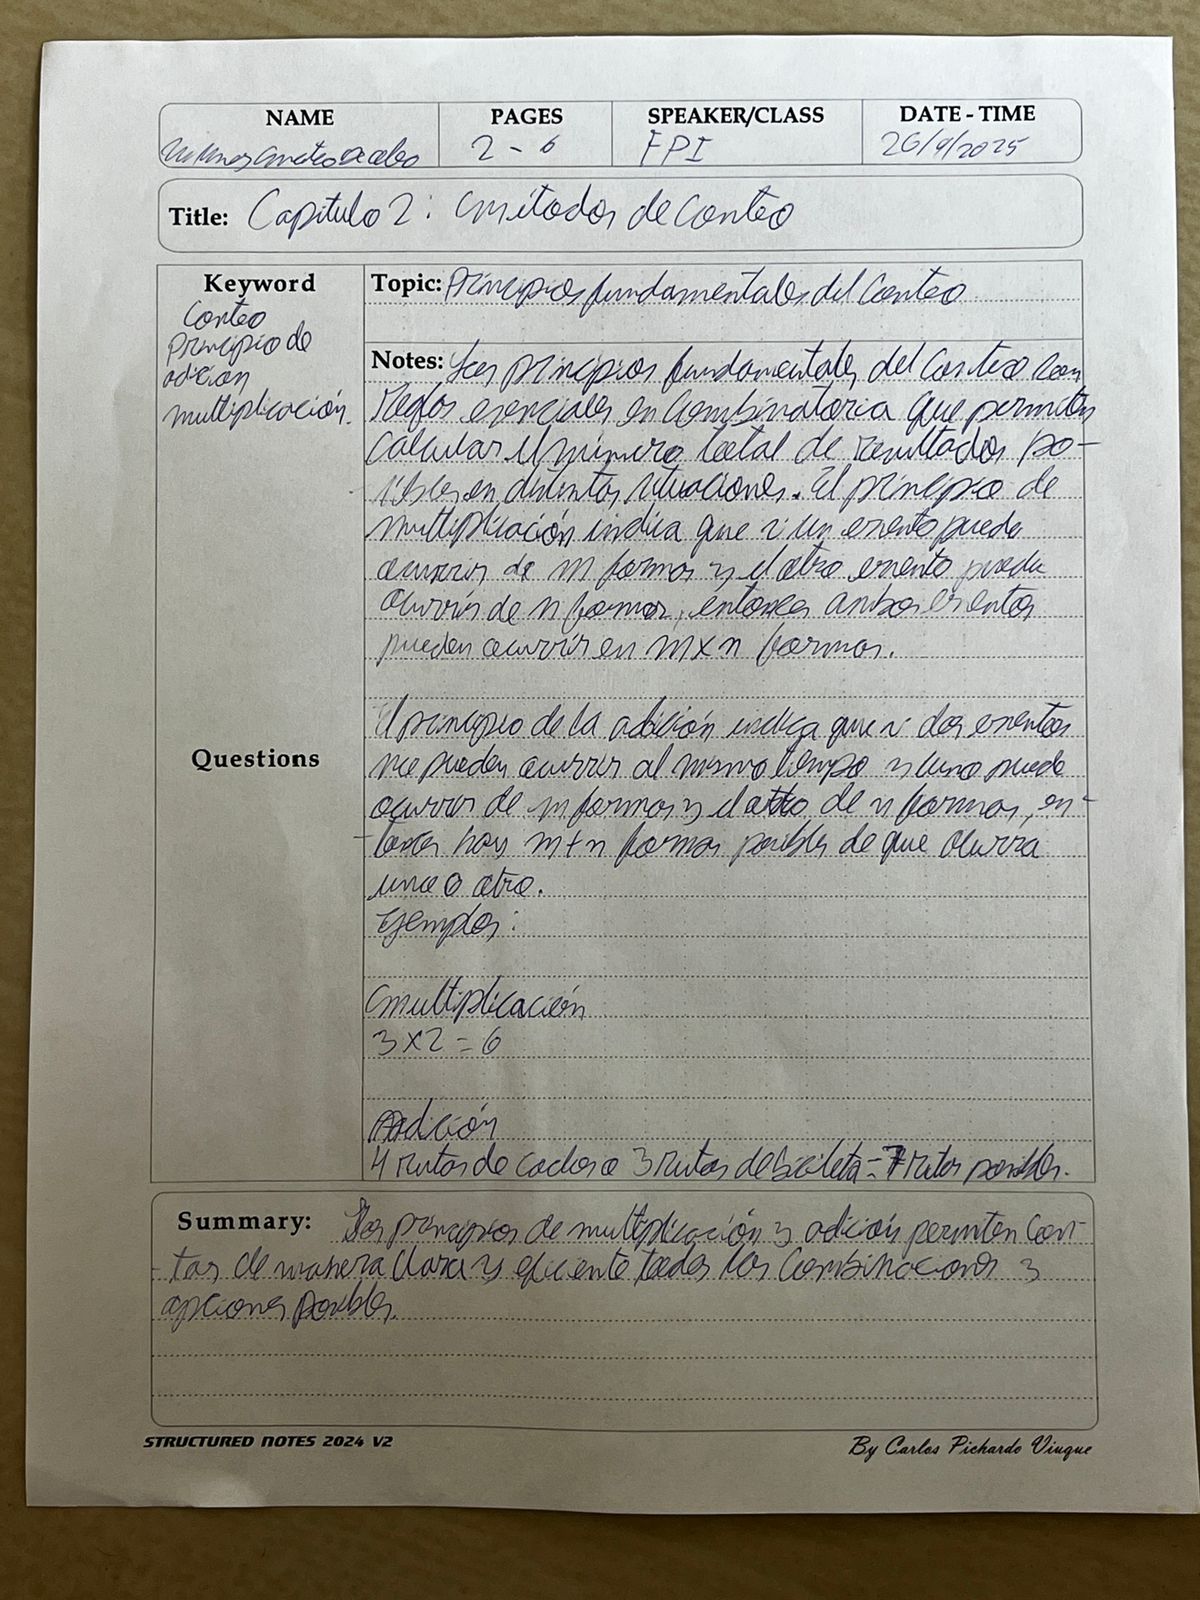 NAME PAGES SPEAKER/CLASS DATE - TIME
2 - 6 FPI 26/9/2025
Title: Capitulo 2: Métodos de Conteo
Keyword
Conteo
principio de
adición
multiplicación.
Topic: Principios fundamentales del Conteo.
Notes: Los principios fundamentales del Conteo son
Reglas esenciales en Combinatoria que permiten
calcular el número total de resultados po-
sibles en distintas situaciones. El principio de
multiplicación indica que si un evento puede
ocurrir de m formas y el otro evento puede
ocurrir de n formas, entonces ambos eventos
pueden ocurrir en m x n formas.
El principio de la adición indica que si dos eventos
Questions
no pueden ocurrir al mismo tiempo y uno puede
ocurrir de m formas y el otro de n formas, en-
tonces hay m + n formas posibles de que ocurra
uno o otro.
Ejemplos:
Multiplicación
3 x 2 = 6
Adición
4 rutas de coches o 3 rutas de bicicleta = 7 rutas posibles.
Summary: Los principios de multiplicación y adición permiten con-
tar de manera clara y eficiente todas las combinaciones y
opciones posibles.
STRUCTURED NOTES 2024 V2
By Carlos Pichardo Viuque